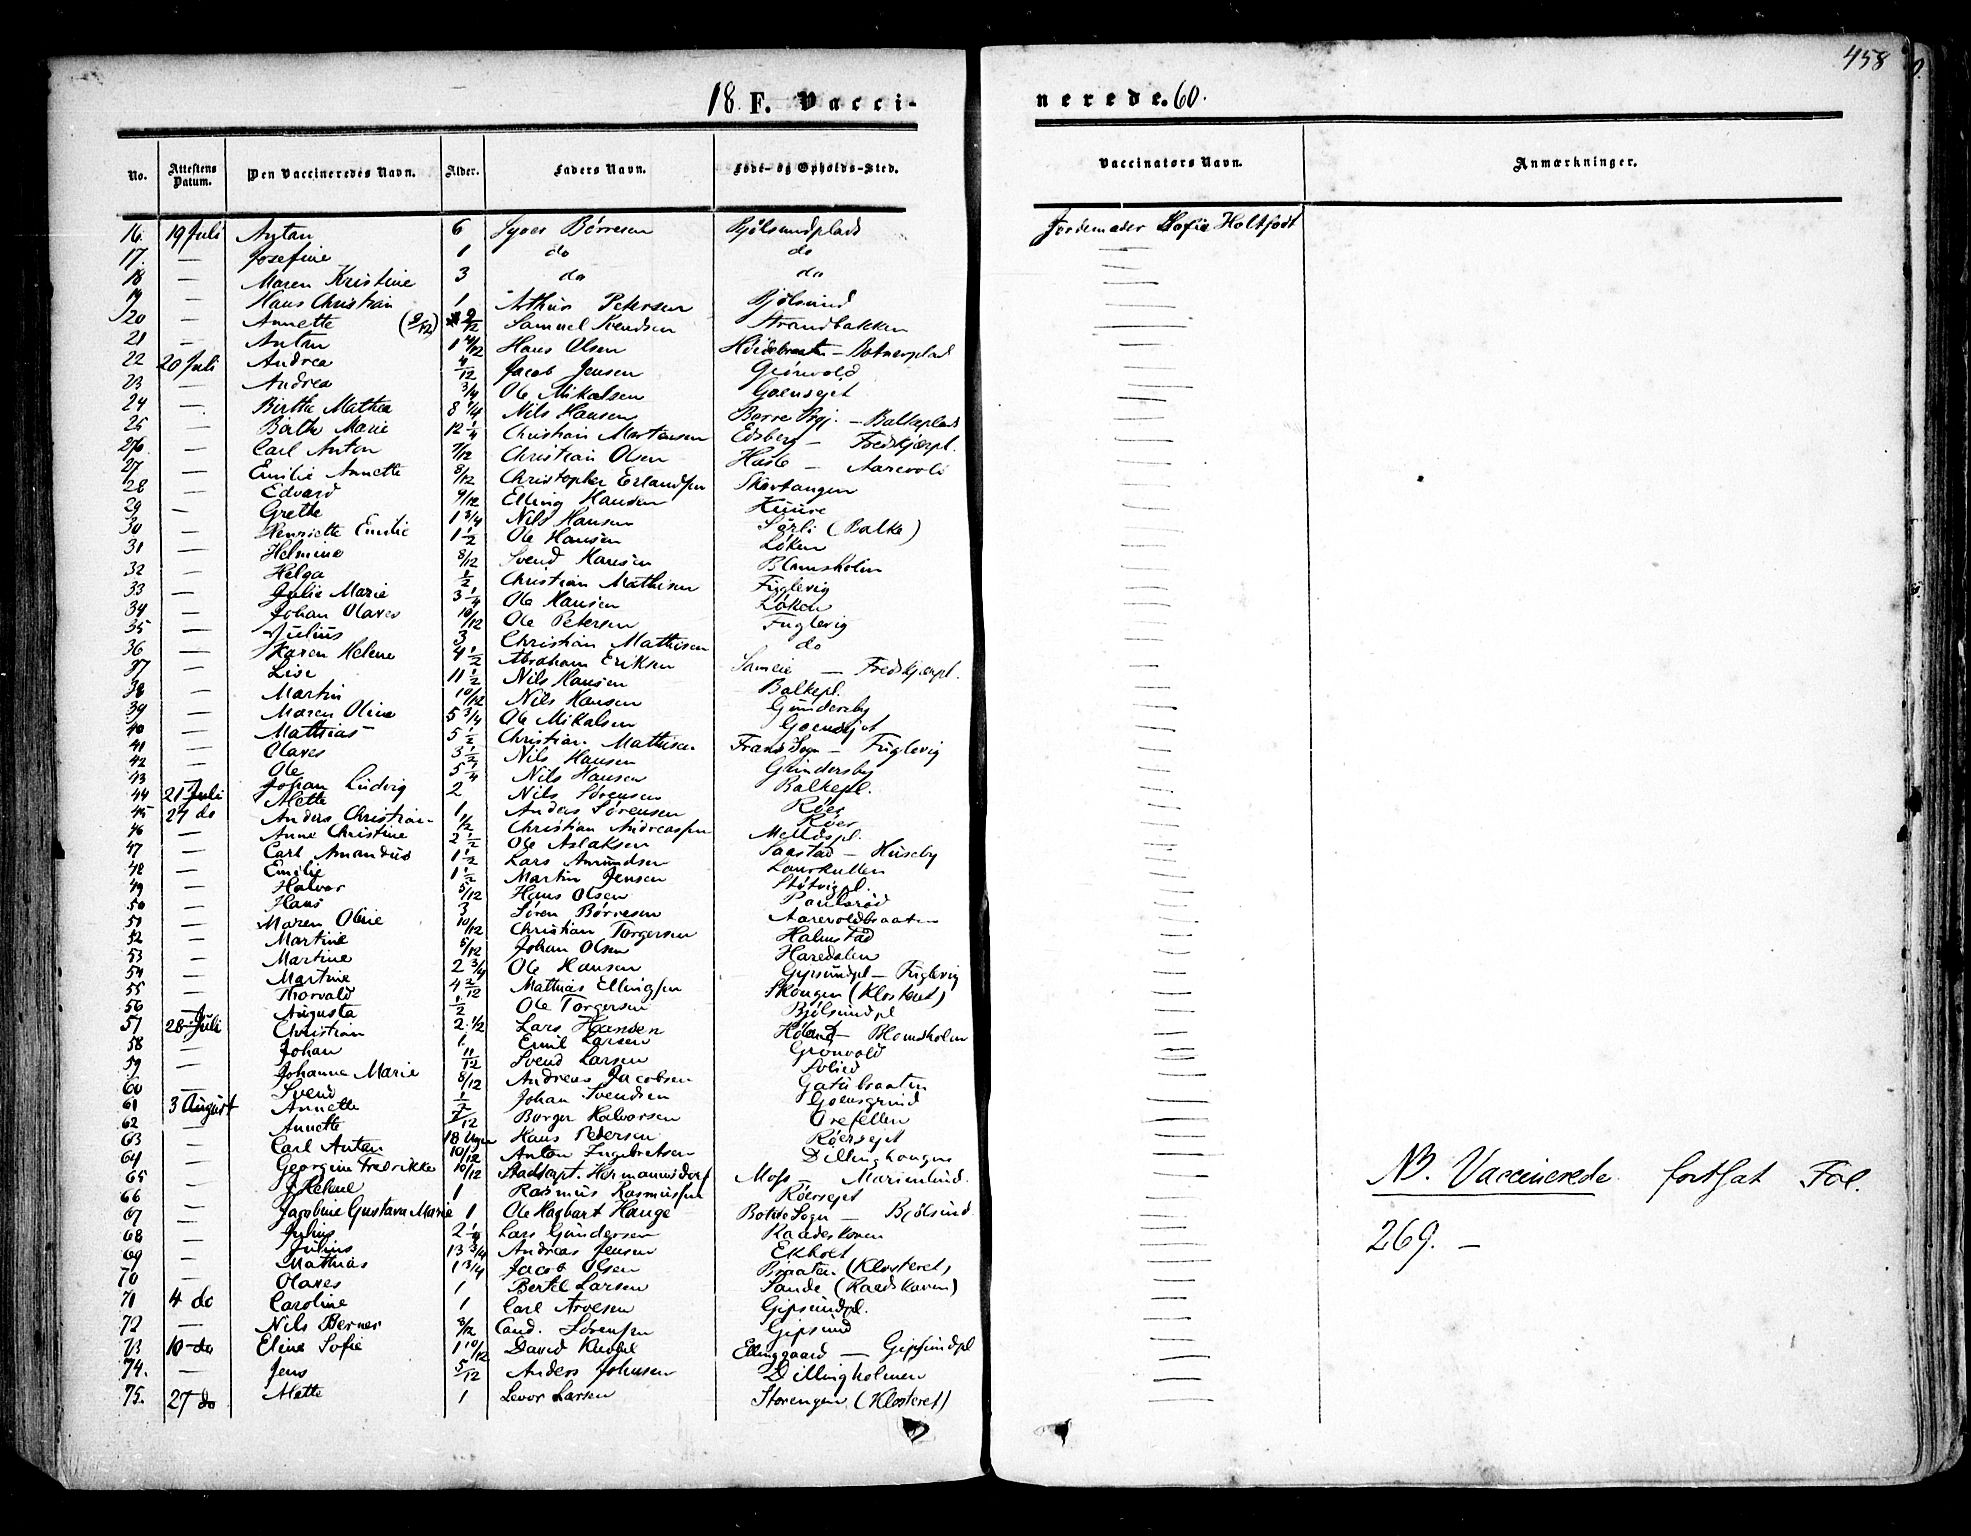 458
18 F. Vacci- nerede. 60.
No. Attestens Datum. Den Vaccineredes Navn. Alder. Faders Navn. Føde- og Opholds-Sted. Vaccinators Navn. Anmærkninger.
16. 19 Juli Anton 6 Børresen Bjölsundplads Jordemoder Sofie Holtfodt
17. — Josefine 1 do do —
18 — Maren Kristine 3 do do —
19 — Hans Christian 1 Arthur Petersen Bjölsund —
20 — Annette (9/12) 9/12 Samuel Svendsen Strandbakken —
21 — Anton 1 Hans Olsen —
22 20 Juli Andrea 4/12 Jacob Jensen Grönvold —
23 — Andrea 3/4 Ole Mikalsen Goensejet —
24 — Birthe Mathea 8 1/4 Nils Hansen — Balkeplads —
25 — Birthe Marie 12 1/4 Christian Martinsen Edsberg — Fredskjærpl. —
26 — Carl Anton 7/12 Christian Olsen — Aarevold —
27 — Emilie Annette 8/12 Christopher Erlandsen Skartangen —
28 — Edvard 9/12 Elling Hansen —
29 — Grethe 1 3/4 Nils Hansen Särli (Balke) —
30 — Henriette Emilie 1 1/2 Ole Hansen Löken —
31 — Helmine 8/12 Svend Hansen Blomsholm —
32 — Helga 1/2 Christian Mathisen Fuglevig —
33 — Julie Marie 3 1/4 Ole Hansen Löken —
34 — Johan Olaves 10/12 Ole Petersen Fuglevig —
35 — Julius 3 Christian Mathisen do —
36 — Karen Helene 4 1/2 Abraham Eriksen — Fredskjærpl. —
37 — Lise 11 1/2 Nils Hansen Balkepl. —
38 — Martin 10/12 Nils Hansen Gundersby —
39 — Maren Oline 5 3/4 Ole Mikalsen Goensejet —
40 — Mathias 5 1/2 Christian Mathisen — Fuglevig —
41 — Olaves 3 1/2 Nils Hansen Gundersby —
42 — Ole 5 1/4 Nils Hansen Balkepl. —
43 — Johan Ludvig 2 Nils Sörensen Röer —
44 21 Juli Mette 1 Anders Sörensen Röer —
45 27 do Anders Christian 1/2 Christian Andreassen —
46 — Anne Christine 2 1/2 Ole Aslaksen Saastad — Huseby —
47 — Carl Amandus 1 1/2 Lars Amundsen Laurkullen —
48 — Emilie 1 1/2 Martin Jensen —
49 — Halvor 5/12 Hans Olsen —
50 — Hans 3 Sören Börresen Aarevoldbraaten —
51 — Maren Oline 10/12 Christian Torgersen Halmstad —
52 — Martine 5/12 Johan Olsen Haredalen —
53 — Martine 2 3/4 Ole Hansen — Fuglevig —
54 — Martine 4 2/12 Mathias Ellingsen Skongen (Klosteret) —
55 — Thorvald 1/2 Ole Torgersen Bjölsundpl —
56 — Augusta 2 1/2 Lars Hansen — Blomsholm —
57 28 Juli Christian 1 Emil Larsen Grönvold —
58 — Johan 11/12 Svend Larsen Solied —
59 — Johanne Marie 8/12 Andreas Jacobsen Gatubraaten —
60 — Svend 1/2 Johan Svendsen Goensgrind —
61 3 August Annette Borger Halvorsen Orefellen —
62 — Annette 18 Uger Hans Petersen Röersejet —
63 — Carl Anton 10/12 Anton Ingebretsen Dillinghougen —
64 — Georgine Fredrikke 10/12 Hermannsdorf Moss — Marienlund. —
65 — Helene 1 Rasmus Rasmussen Röersejet —
66 — Jacobine Gustava Marie 1 Ole Hagbart Hauge — Bjölsund —
67 — Julius Lars Gundersen —
68 — Julius 13 3/4 Andreas Jensen Ekholt —
69 — Mathias 1 3/4 Jacob Olsen Braaten (Klosteret) —
70 — Olaves 1 Bertil Larsen Sande —
71 4 do Caroline 1 Carl Arvesen Gipsundpl. —
72 — Nils Berner Cand. Sörensen Gipsund —
73 10 do Eline Sofie 1 10/12 David Ellinggaard — Gipsundpl —
74. — Jens 5/12 Anders Johnsen Dillingholmen —
75. 27 do Mette 1 Levor Larsen Storengen (Klosteret) —
NB. Vaccinerede fortsat Fol.
269. —